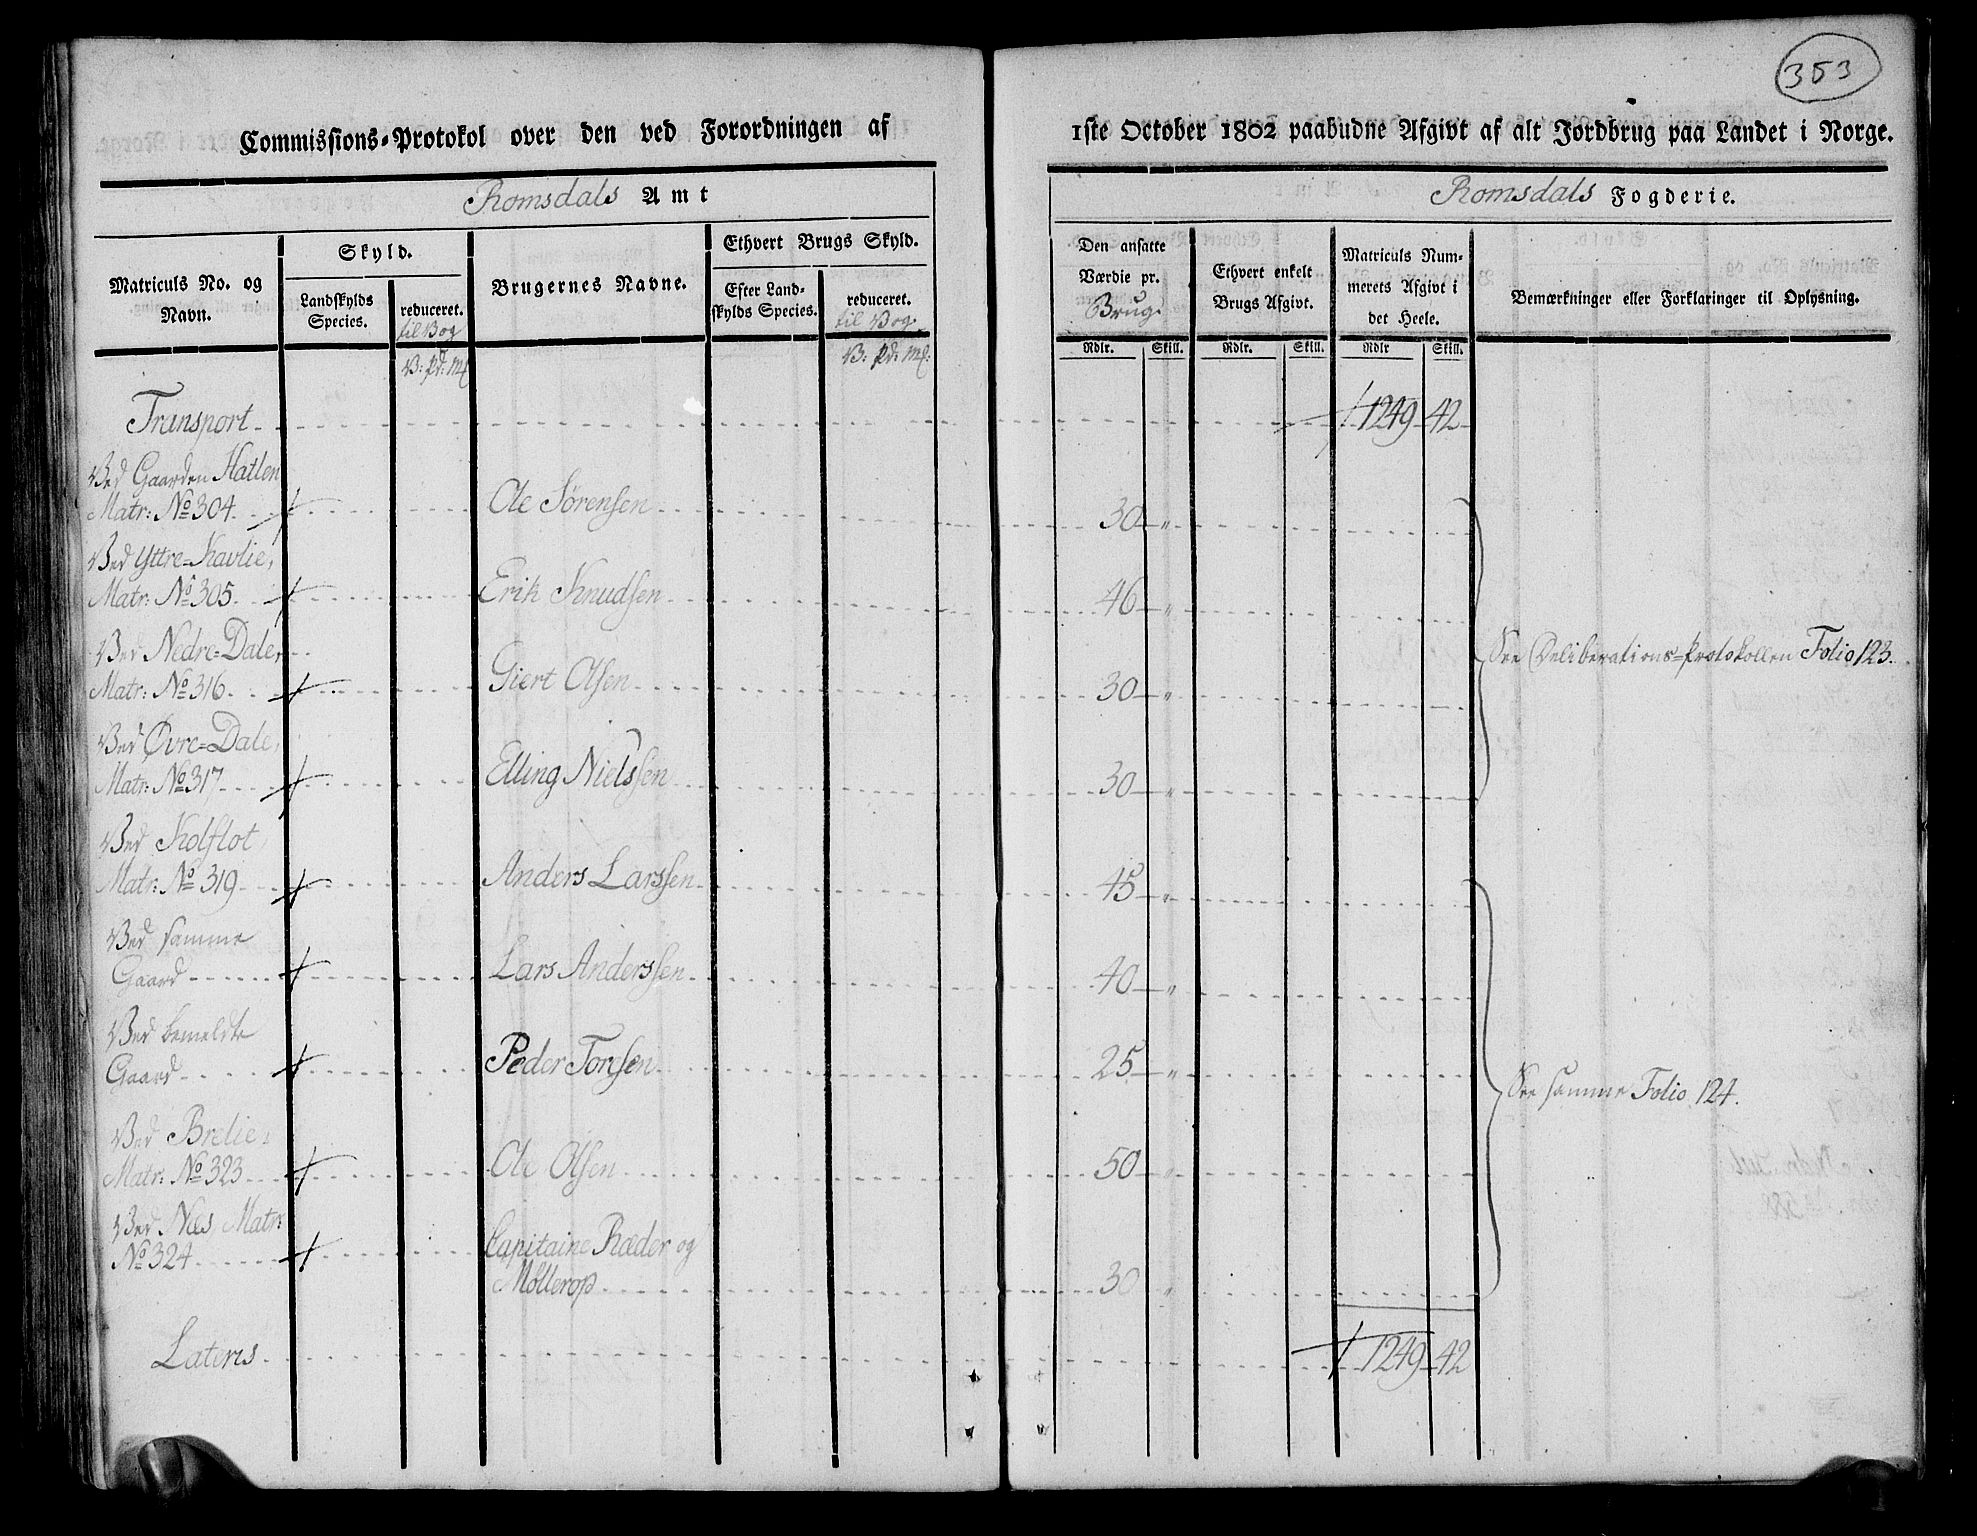 353
Commissions-Protokol over den ved Forordningen af 1ste October 1802 paabudne Afgivt af alt Jordbrug paa Landet i Norge.
Romsdals Amt
Romsdals Fogderie.
Matriculs No. og Navn.
Skyld.
Landskylds Species.
reduceret.
til Vog
V: pd: Mk
Brugernes Navne.
Ethvert Brugs Skyld.
Efter Land-
skylds Species.
reduceret.
til Vog.
V: pd: Mk:
Den ansatte
Værdie pr.
Brug.
Rdlr. Skill.
Ethvert enkelt
Brugs Afgivt.
Rdlr. Skill.
Matriculs Num-
merets Afgivt i
det Heele.
Rdlr Skill.
Bemærkninger eller Forklaringer til Oplysning.
Transport 1249 42
Ved Gaarden Hatlen
Matr: No 304 Ole Sørensen 30 "
Ved Yttre-Kavlie,
Matr: No 305 Erik Knudsen 46 "
Ved Nedre-Dale,
Matr: No 316 Giert Olsen 30 "
See Deliberations-Protokollen Folio 123.
Ved Øvre-Dale,
Matr: No 317 Elling Nielssen 30 "
Ved Kolflot,
Matr: No 319 Anders Larssen 45 "
Ved samme
Gaard Lars Anderssen 40 "
Ved bemeldte
Gaard Peder Torsen 25 "
See samme Folio 124.
Ved Brelie,
Matr: No 323 Ole Olsen 50 "
Ved Næs, Matr:
No 324 Capitaine Ræder og
Møllerop 30 "
Lateris 1249 42